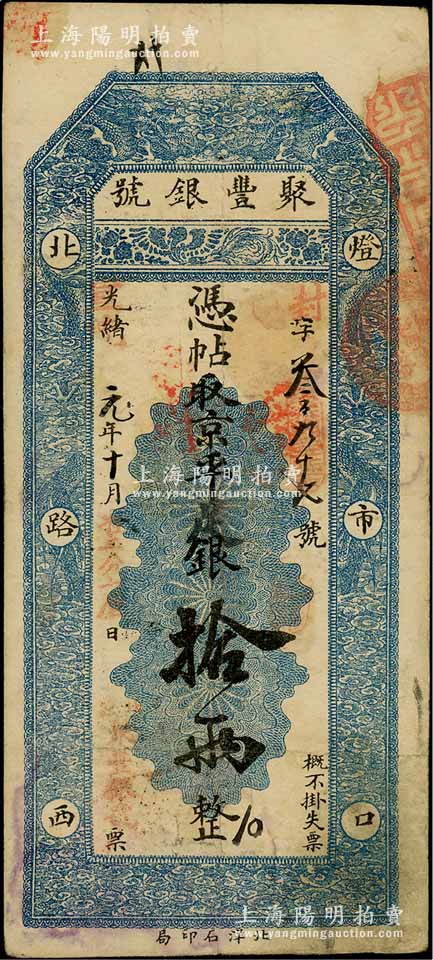 上海陽明拍賣
www.yangmingauction.com
聚豐銀號
燈市口
北路西
字叁千九十九號
憑帖取京平足銀拾兩整
10
光緒元年十月日票
概不掛失票
上海陽明拍賣
www.yangmingauction.com
北洋石印局
上海陽明拍賣
www.yangmingauction.com